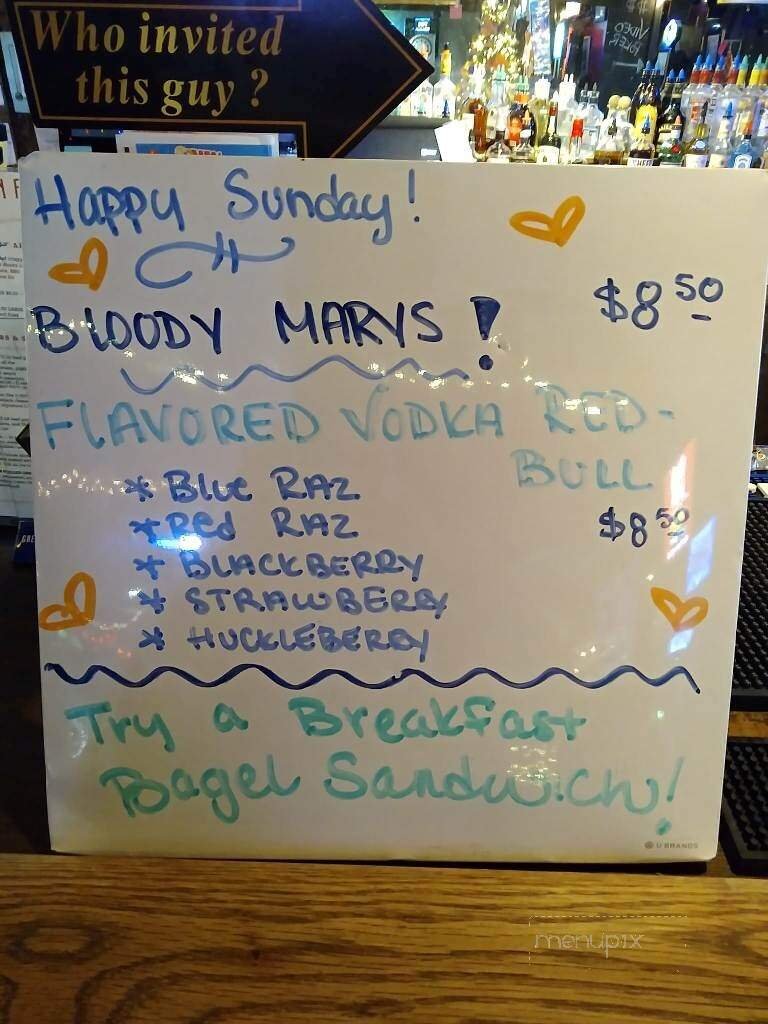 Who invited
this guy?
VIDEO
POKER
Happy Sunday!
BLOODY MARYS! $8 50
FLAVORED VODKA RED-
BULL
* Blue RAZ
* Red RAZ $8 50
* BLACKBERRY
* STRAWBERRY
* HUCKLEBERRY
Try a Breakfast
Bagel Sandwich!
U BRANDS
menupix